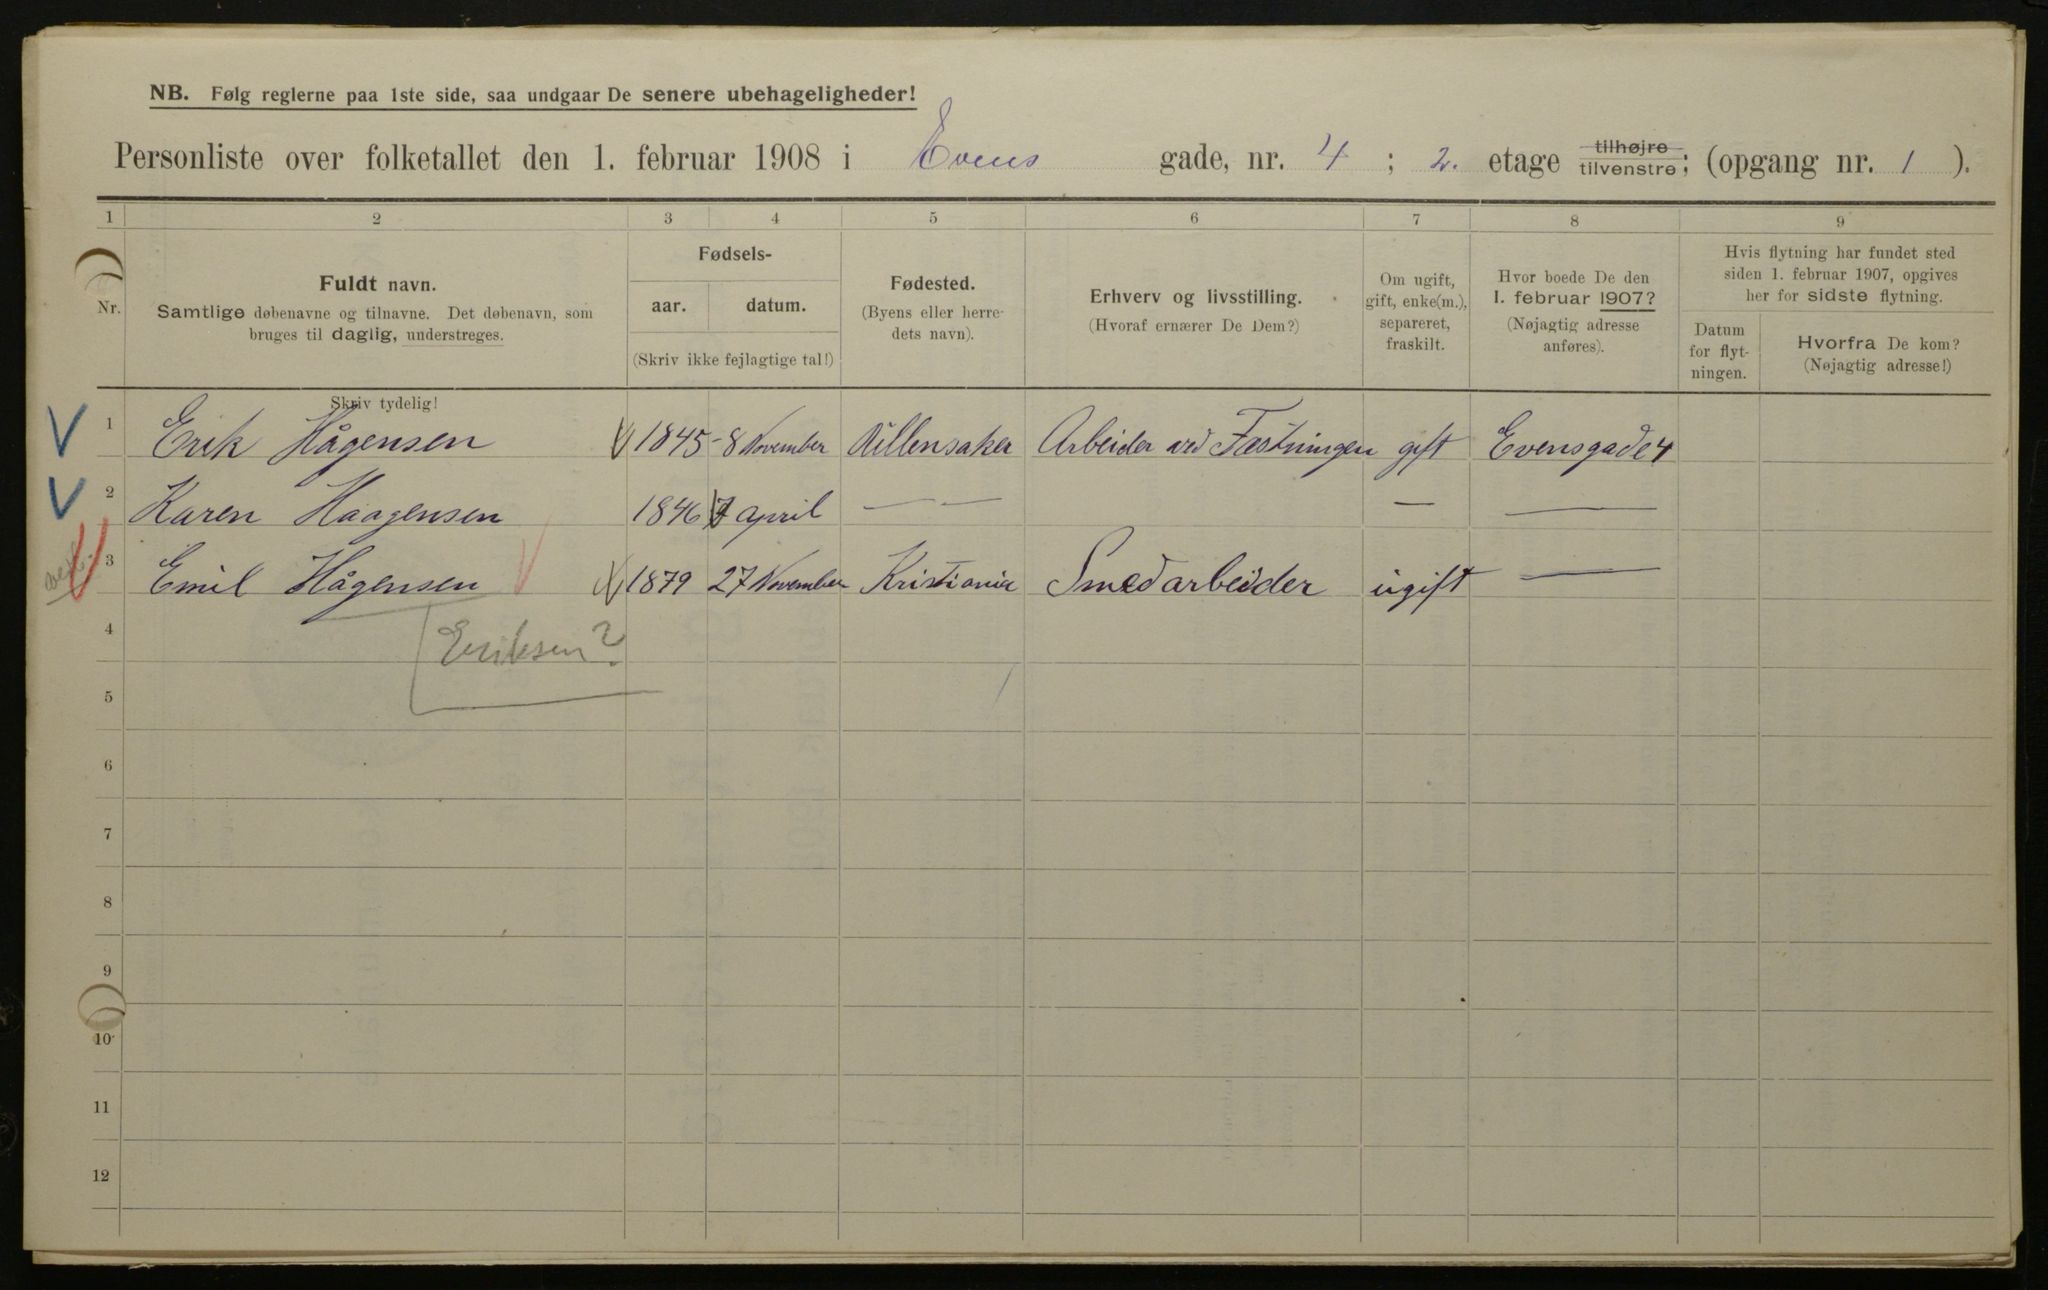 NB. Følg reglerne paa 1ste side, saa undgaar De senere ubehageligheder!
Personliste over folketallet den 1. februar 1908 i Evens gade, nr. 4 ; 2. etage tilhøjre tilvenstre; (opgang nr. 1 ).
1 2 3 4 5 6 7 8 9
Nr.
Fuldt navn.
Samtlige døbenavne og tilnavne. Det døbenavn, som
bruges til daglig, understreges.
Skriv tydelig!
Fødsels-
aar. datum.
(Skriv ikke fejlagtige tal!)
Fødested.
(Byens eller herre-
dets navn).
Erhverv og livsstilling.
(Hvoraf ernærer De Dem?)
Om ugift,
gift, enke(m.),
separeret,
fraskilt.
Hvor boede De den
1. februar 1907?
(Nøjagtig adresse
anføres).
Hvis flytning har fundet sted
siden 1. februar 1907, opgives
her for sidste flytning.
Datum
for flyt-
ningen.
Hvorfra De kom?
(Nøjagtig adresse!)
1 Erik Hågensen 1845 - 8 November Ullensaker Arbeider ved Fæstningen gift Evensgade 4
2 Karen Haagensen 1846 7 april — — — —
3 Emil Hågensen 1879 27 November Kristiania Smedarbeider ugift —
4 Eriksen?
5
6
7
8
9
10
11
12